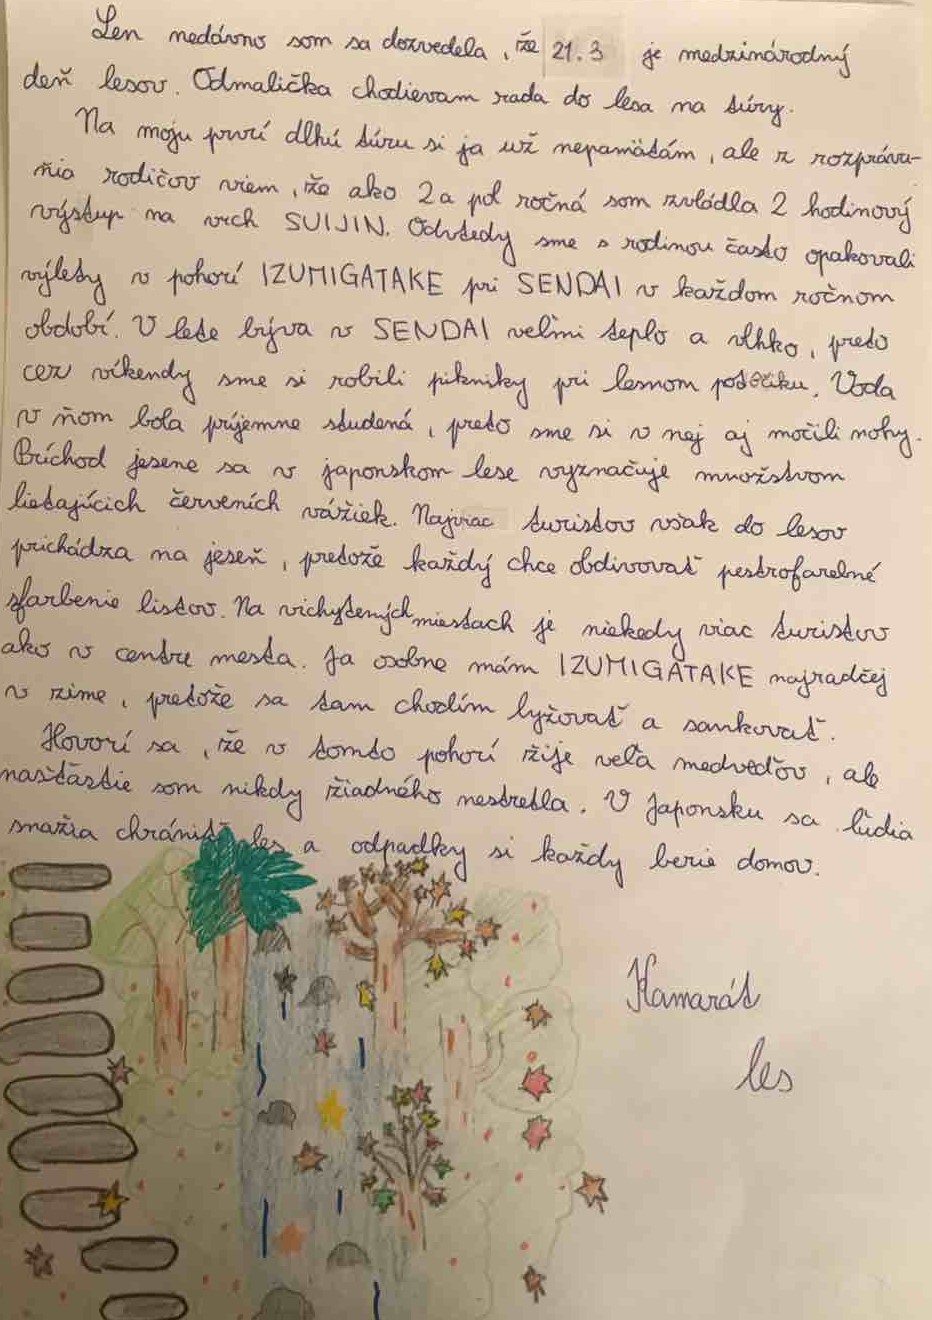 Len nedávno som sa dozvedela, že 21.3 je medzinárodný
deň lesov. Odmalička chodievam rada do lesa na túry.
Na moju prvú dlhú túru si ja už nepamätám, ale z rozpráva-
nia rodičov viem, že ako 2 a pol ročná som zvládla 2 hodinový
výstup na vrch SUIJIN. Odvtedy sme s rodinou často opakovali
výlety v pohorí IZUMIGATAKE pri SENDAI v každom ročnom
období. V lete býva v SENDAI veľmi teplo a vlhko, preto
cez víkendy sme si robili pikniky pri lesnom potôčiku. Voda
v ňom bola príjemne studená, preto sme si v nej aj močili nohy.
Príchod jesene sa v japonskom lese vyznačuje množstvom
lietajúcich červeních vážiek. Najviac turistov však do lesov
prichádza na jeseň, pretože každý chce obdivovať pestrofarebné
sfarbenie listov. Na vichytených miestach je niekedy viac turistov
ako v centre mesta. Ja osobne mám IZUMIGATAKE najradčej
v zime, pretože sa tam chodím lyžovať a sankovať.
Hovorí sa, že v tomto pohorí žije veľa medveďov, ale
našťastie som nikdy žiadného nestretla. V Japonsku sa ľudia
snažia chrániť les a odpadky si každý berie domov.
Kamarát
les